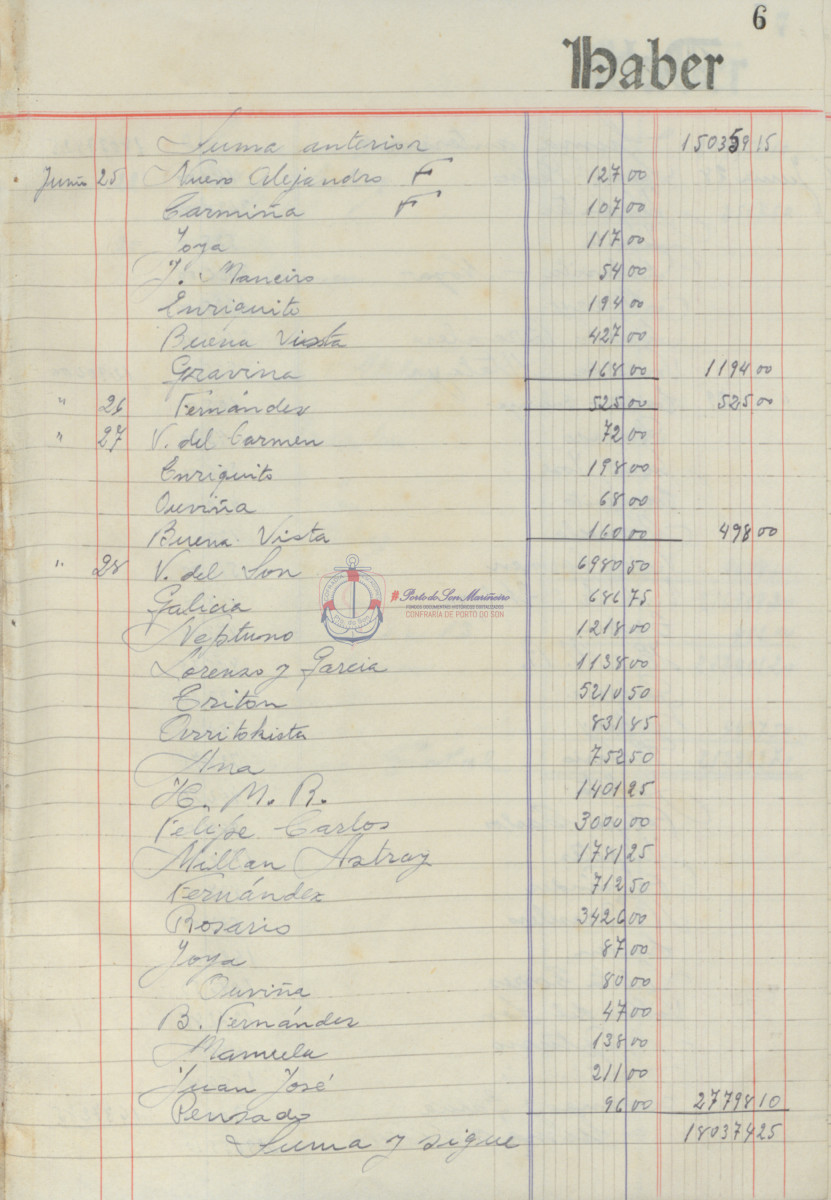 6
Haber
Suma anterior 150359 15
Junio 25 Nuevo Alejandro F 127 00
Carmiña F 107 00
Joya 117 00
J. Maneiro 54 00
Enriquito 194 00
Buena Vista 427 00
Gravina 168 00 1194 00
" 26 Fernández 525 00 525 00
" 27 V. del Carmen 72 00
Enriquito 198 00
Ouviña 68 00
Buena Vista 160 00 498 00
" 28 V. del Son 6980 50
Galicia 686 75
Neptuno 1218 00
Lorenzo y Garcia 1138 00
Triton 5210 50
Arritokista 831 85
Ana 752 50
H. M. R. 1401 25
Felipe Carlos 3000 00
Millan Astray 1781 25
Fernández 712 50
Rosario 3426 00
Joya 87 00
Ouviña 80 00
B. Fernández 47 00
Manuela 138 00
Juan José 211 00
Pensado 96 00 27798 10
Suma y sigue 180374 25
#Porto do Son Mariñeiro
FONDOS DOCUMENTAIS HISTÓRICOS DIXITALIZADOS
CONFRARIA DE PORTO DO SON